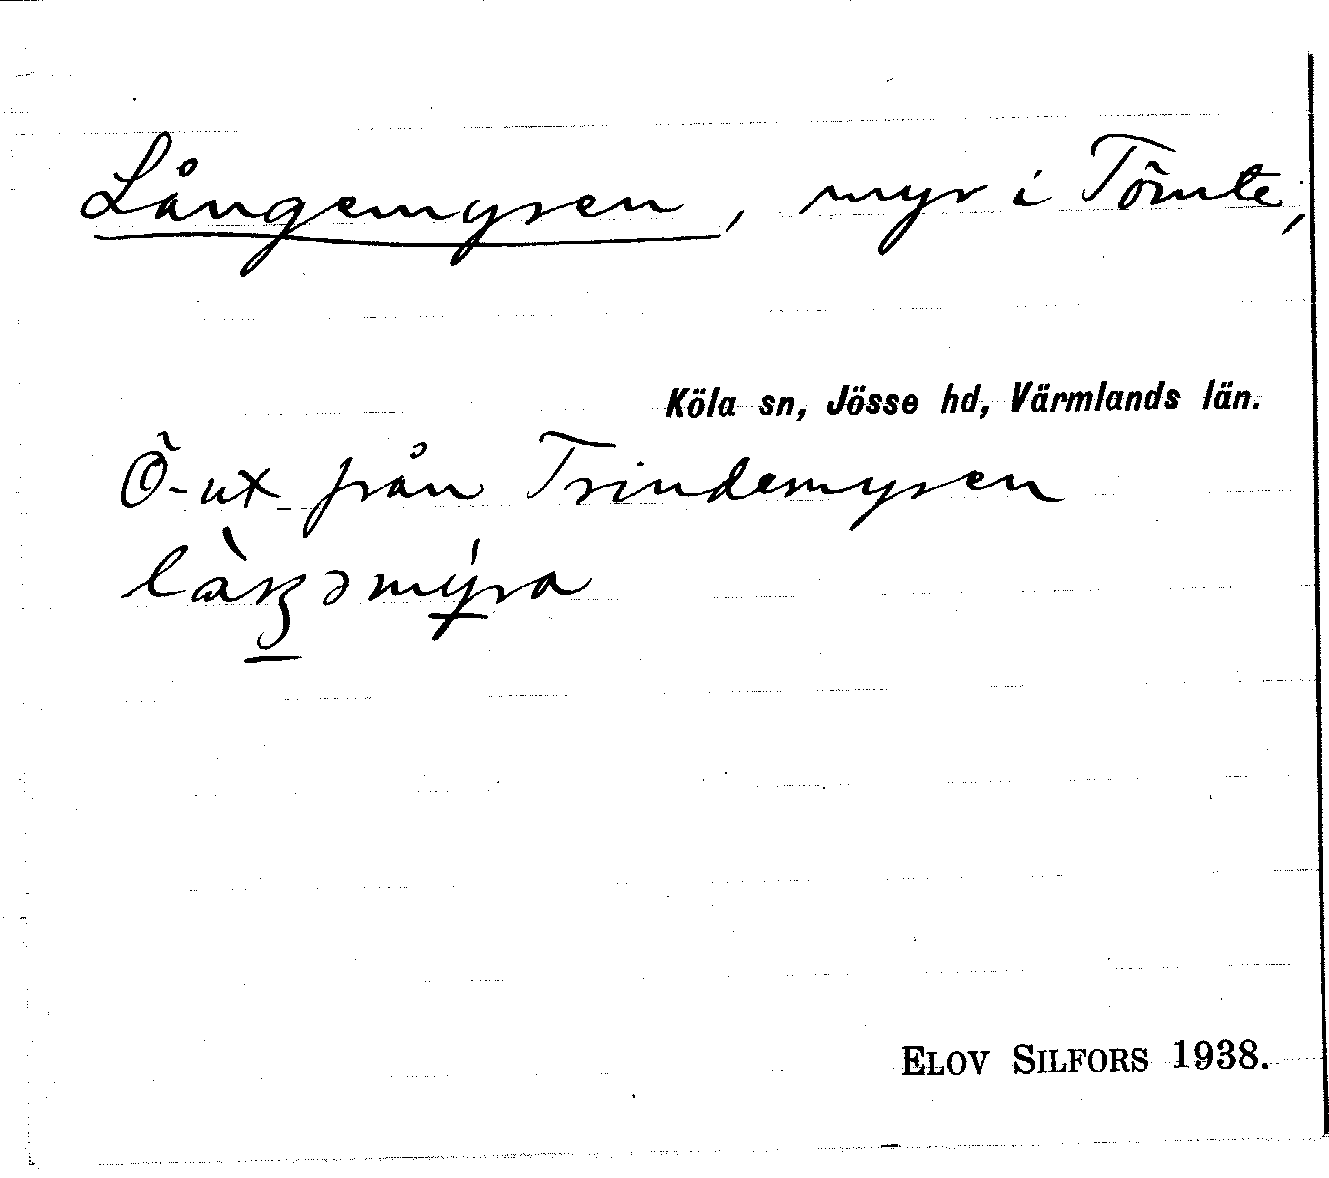 Långemyren, myr i Tömte,
Köla sn, Jösse hd, Värmlands län.
Ö-ut från Trindemyren
ELOV SILFORS 1938.